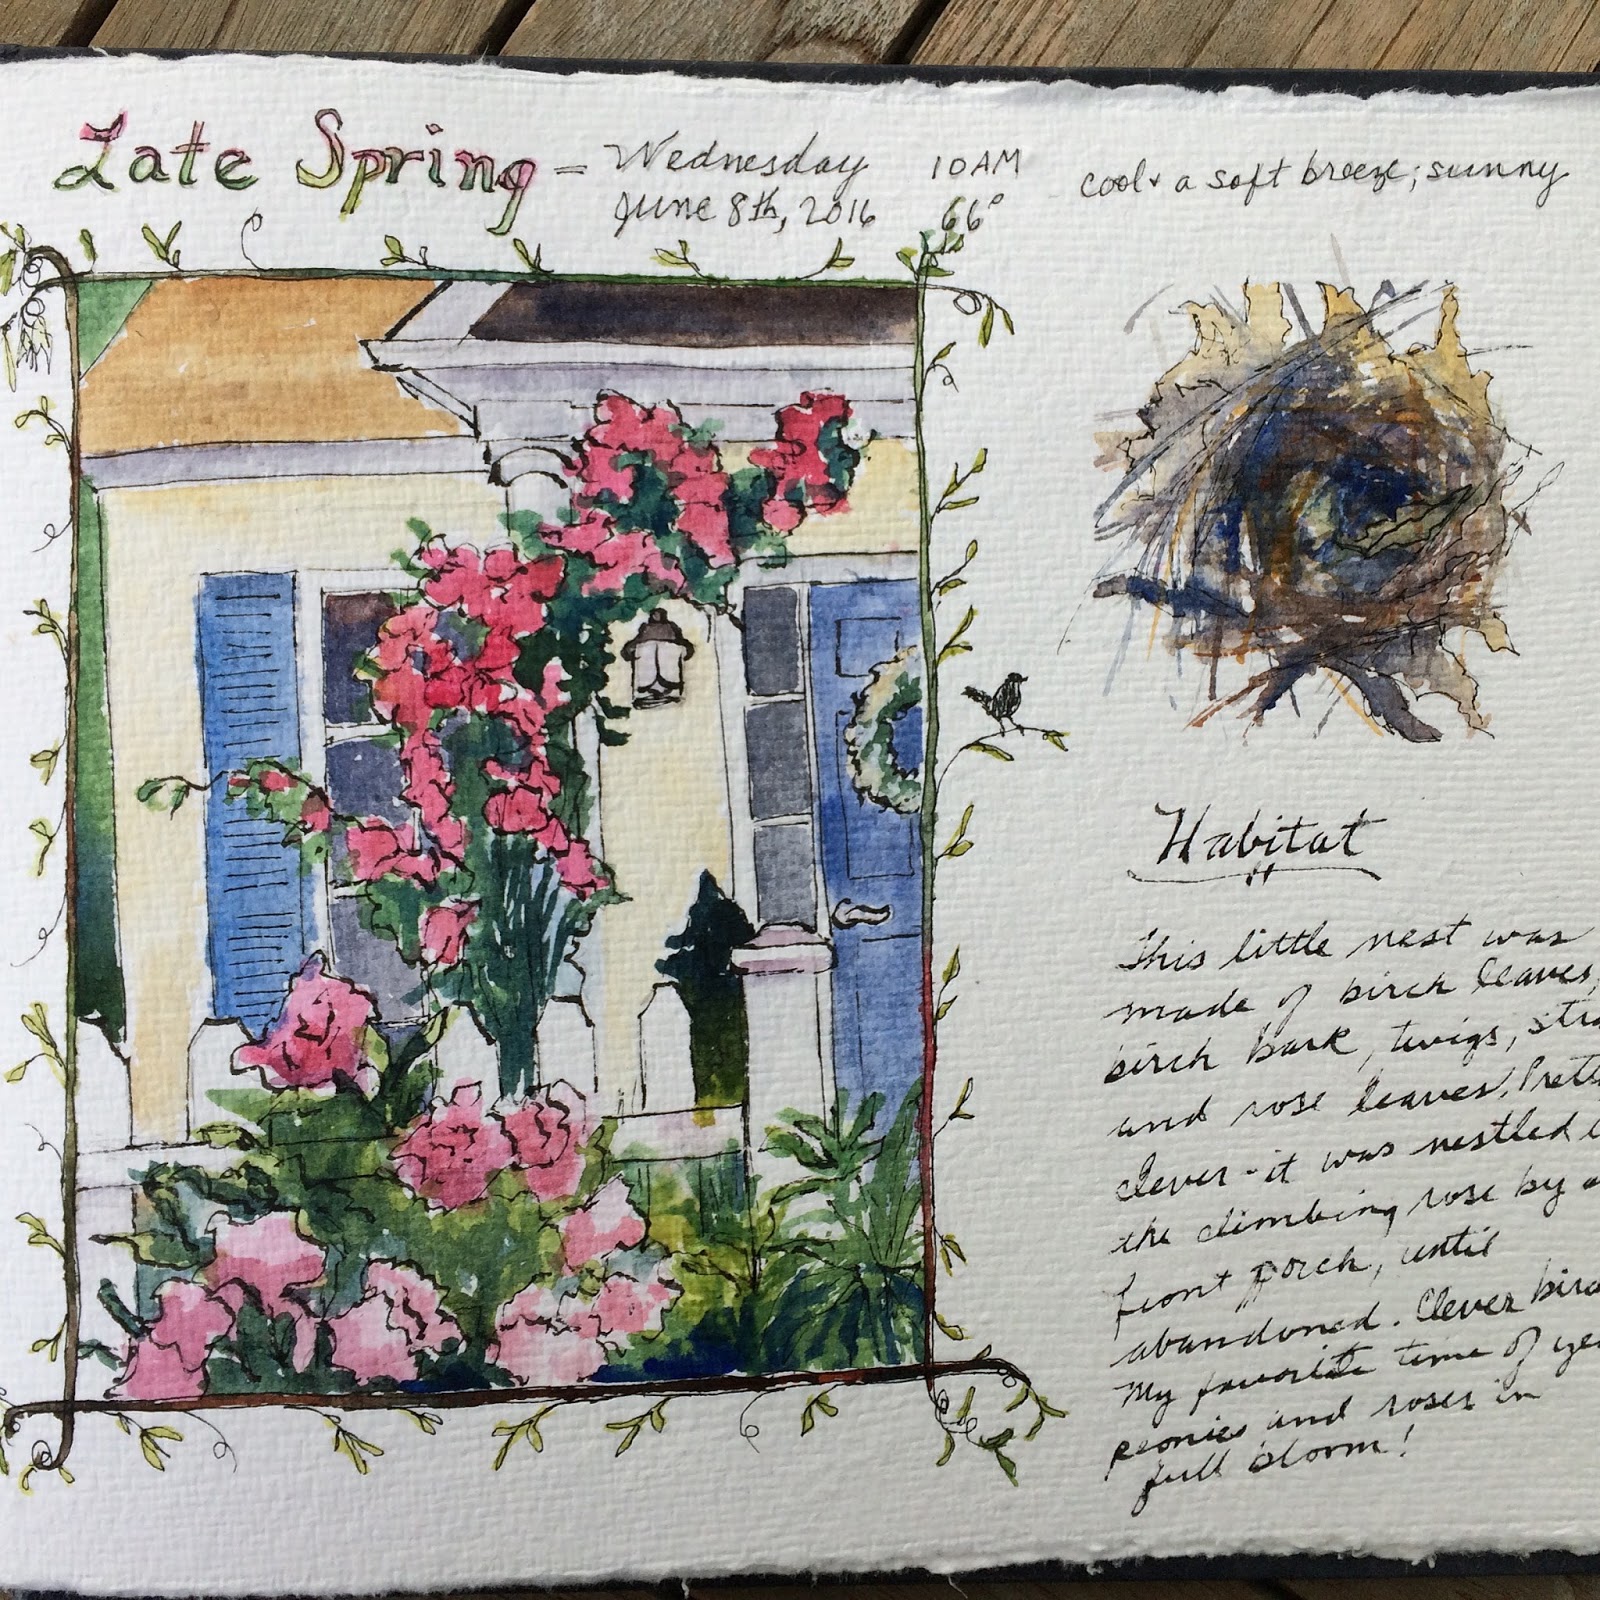 Late Spring - Wednesday 10AM cool & a soft breeze; sunny
June 8th, 2016 66°
Habitat
This little nest was
made of birch leaves,
birch bark, twigs, str
and rose leaves. Prett
clever - it was nestled
the climbing rose by
front porch, until
abandoned. Clever bird
My favorite time of ye
peonies and roses in
full bloom!